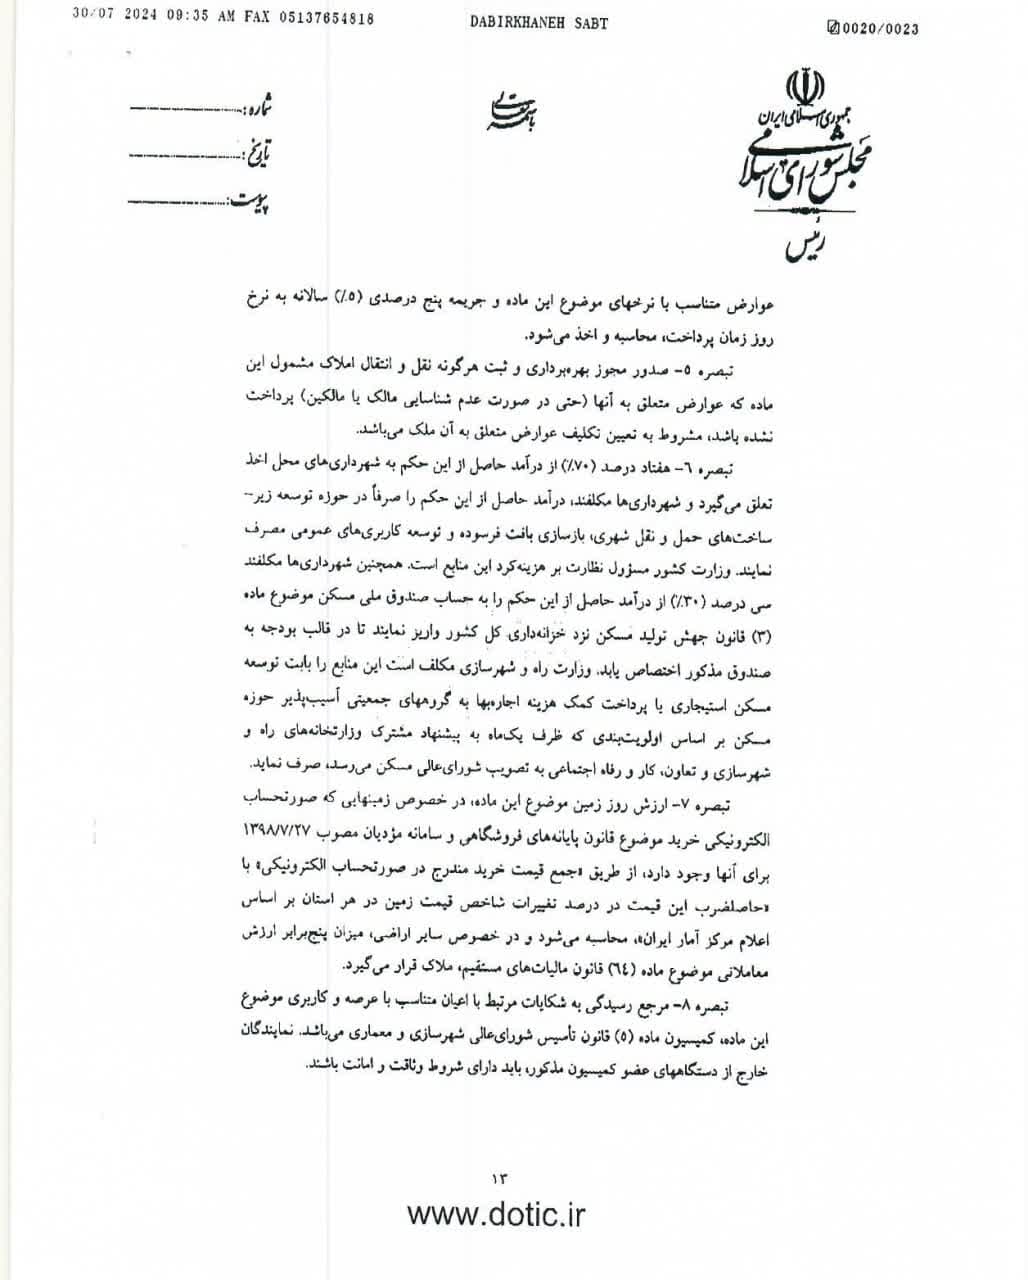 30/07 2024 09:35 AM FAX 05137654818 DABIRKHANEH SABT 0020/0023
باسمه تعالی
جمهوری اسلامی ایران
مجلس شورای اسلامی
رئیس
شماره:
تاریخ:
پیوست:
عوارض متناسب با نرخهای موضوع این ماده و جریمه پنج درصدی (۵٪) سالانه به نرخ
روز زمان پرداخت، محاسبه و اخذ می‌شود.
تبصره ۵- صدور مجوز بهره‌برداری و ثبت هرگونه نقل و انتقال املاک مشمول این
ماده که عوارض متعلق به آنها (حتی در صورت عدم شناسایی مالک یا مالکین) پرداخت
نشده باشد، مشروط به تعیین تکلیف عوارض متعلق به آن ملک می‌باشد.
تبصره ۶- هفتاد درصد (۷۰٪) از درآمد حاصل از این حکم به شهرداری‌های محل اخذ
تعلق می‌گیرد و شهرداری‌ها مکلفند، درآمد حاصل از این حکم را صرفاً در حوزه توسعه زیر-
ساخت‌های حمل و نقل شهری، بازسازی بافت فرسوده و توسعه کاربری‌های عمومی مصرف
نمایند. وزارت کشور مسؤول نظارت بر هزینه‌کرد این منابع است. همچنین شهرداری‌ها مکلفند
سی درصد (۳۰٪) از درآمد حاصل از این حکم را به حساب صندوق ملی مسکن موضوع ماده
(۳) قانون جهش تولید مسکن نزد خزانه‌داری کل کشور واریز نمایند تا در قالب بودجه به
صندوق مذکور اختصاص یابد. وزارت راه و شهرسازی مکلف است این منابع را بابت توسعه
مسکن استیجاری یا پرداخت کمک هزینه اجاره‌بها به گروههای جمعیتی آسیب‌پذیر حوزه
مسکن بر اساس اولویت‌بندی که ظرف یک‌ماه به پیشنهاد مشترک وزارتخانه‌های راه و
شهرسازی و تعاون، کار و رفاه اجتماعی به تصویب شورای‌عالی مسکن می‌رسد، صرف نماید.
تبصره ۷- ارزش روز زمین موضوع این ماده، در خصوص زمینهایی که صورتحساب
الکترونیکی خرید موضوع قانون پایانه‌های فروشگاهی و سامانه مؤدیان مصوب ۱۳۹۸/۷/۲۷
برای آنها وجود دارد، از طریق «جمع قیمت خرید مندرج در صورتحساب الکترونیکی» با
«حاصلضرب این قیمت در درصد تغییرات شاخص قیمت زمین در هر استان بر اساس
اعلام مرکز آمار ایران»، محاسبه می‌شود و در خصوص سایر اراضی، میزان پنج‌برابر ارزش
معاملاتی موضوع ماده (۶۴) قانون مالیات‌های مستقیم، ملاک قرار می‌گیرد.
تبصره ۸- مرجع رسیدگی به شکایات مرتبط با اعیان متناسب با عرصه و کاربری موضوع
این ماده، کمیسیون ماده (۵) قانون تأسیس شورای‌عالی شهرسازی و معماری می‌باشد. نمایندگان
خارج از دستگاههای عضو کمیسیون مذکور، باید دارای شروط وثاقت و امانت باشند.
۱۳
www.dotic.ir